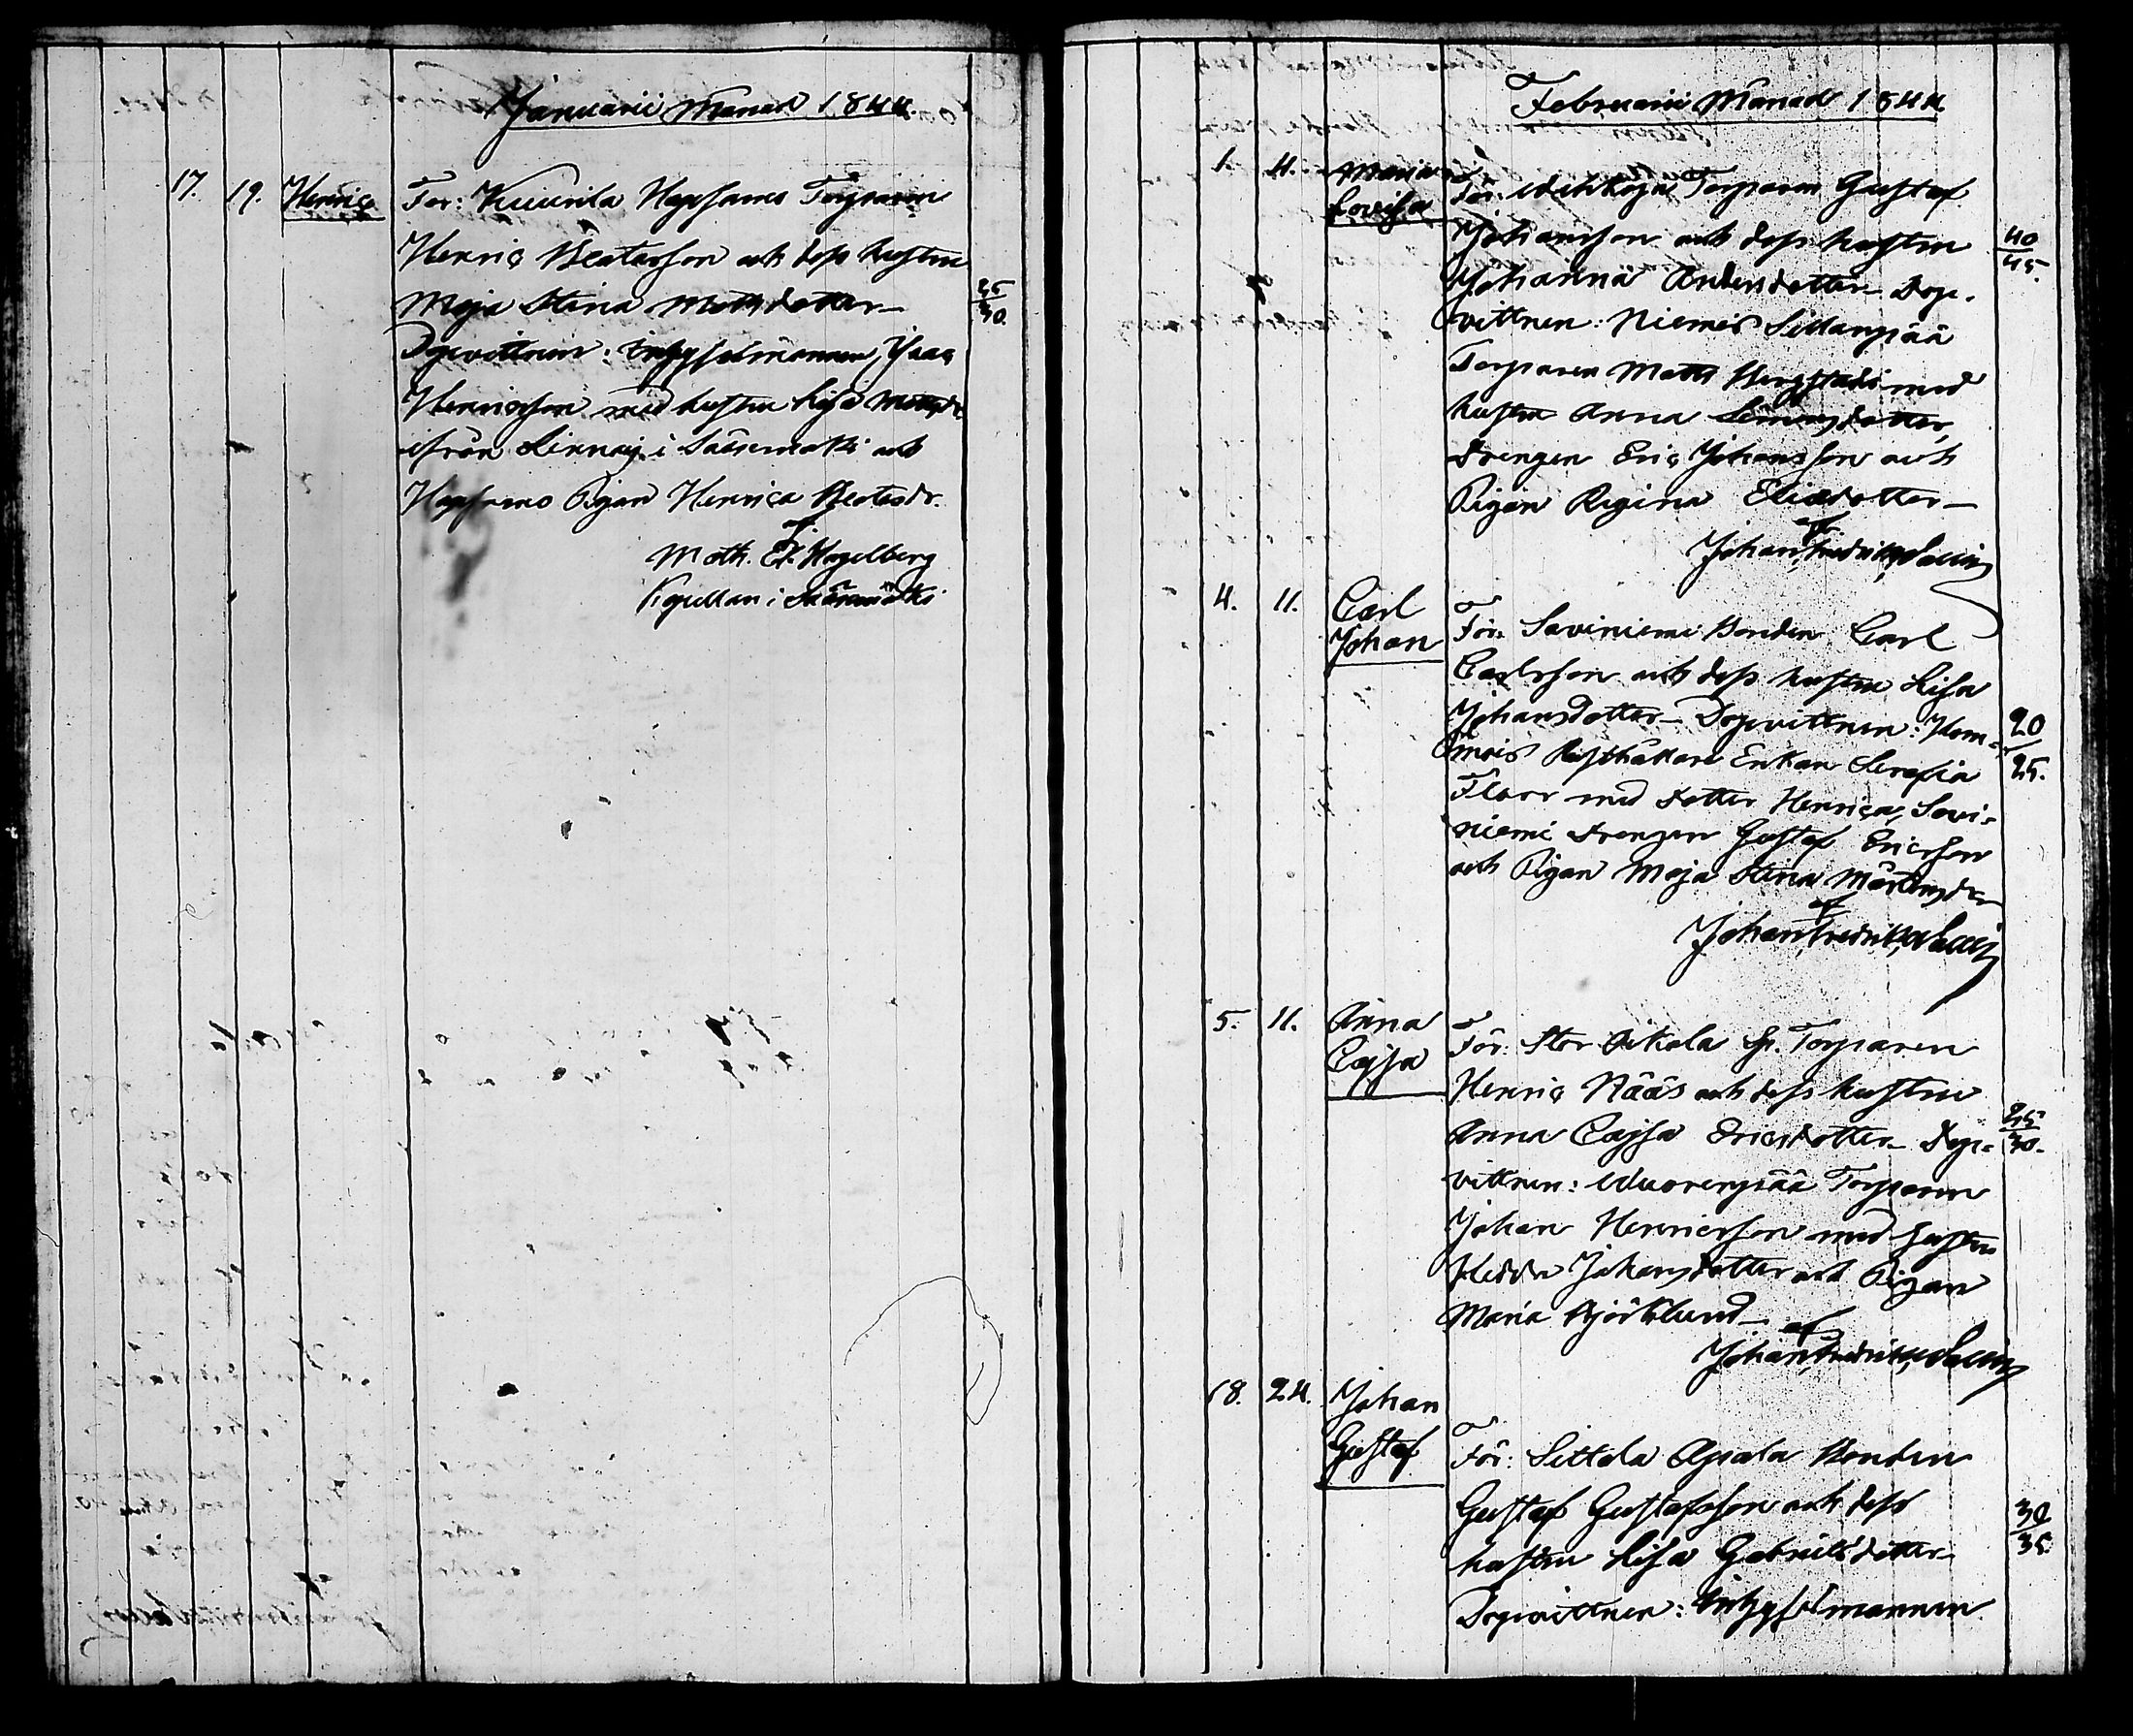 Januarii Månad 1844.
17. 19. Henric
För: Kuurila Torparen
Henric Beatasson och dess hustru
Maja Stina Mattsdotter 25/30.
Dopvittnen: Inhyselmannen Isaac
Henricsson med hustru Lisa Mattsdr
ifrån i Sääxmäki och
Pigan Henrica Beatasdr.
af
Math. Ef. Hagelberg
Kapellan i Sääxmäki
Februarii Månad 1844
1. 4. Maria Lovisa
För: Torparen Gustaf
Johansson och dess hustru 40/45.
Johanna Andersdotter Dop-
vittnen: Niemis Sillanpää
Torparen Matts Bergstadi med
hustru Anna Simonsdotter,
Drengen Eric Johansson och
Pigan Regina Eliædotter
af
Johan Fredrik
4. 11. Carl Johan
För: Saviniemi Bonden Carl
Carlsson och dess hustru Lisa
Johansdotter Dopvittnen: Hom- 20/25.
mois Rusthållare Enkan Serafia
Floor med dotter Henrica, Savi-
niemi Drengen Gustaf Ericsson
och Pigan Maja Stina Mårtensdr
af
Johan Fredrik
5. 11. Anna Cajsa
För: Stor Torparen
Henric Nääs och dess hustru
Anna Cajsa Ericsdotter Dop- 25/30.
vittnen: Vuorenpää Torparen
Johan Henricsson med hustru
Hedda Johansdotter och Pigan
Maria Björklund
af
Johan Fredrik
18. 24. Johan Gustaf
För: Sittola Apala Bonden
Gustaf Gustafsson och dess 30/35
hustru Lisa Gabrielsdotter
Dopvittnen: Inhyselmannen